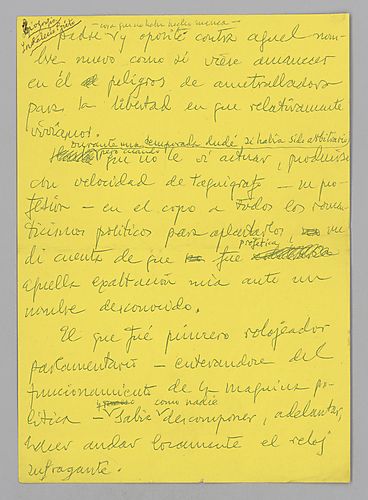 Biografía
Indalecio Prieto
— cosa que no había hecho nunca —
padre y aposté contra aquel nom-
bre nuevo como si viese amanecer
en él peligros de ametralladora
para la libertad en que relativamente
vivíamos.
Durante una temporada dudé si había sido arbitrario,
pero cuando
que no le vi actuar, producirse
con velocidad de taquígrafo — su pro-
fesión — en el copo a todos los roman-
ticismos políticos para aplastarlos, me
di cuenta de que fue profética
aquella exaltación mía ante un
nombre desconocido.
El que fué primero relojeador
parlamentario — enterandose del
funcionamiento de la maquina po-
lítica — sabía como nadie descomponer, adelantar,
hacer andar locamente el reloj
sufragante.